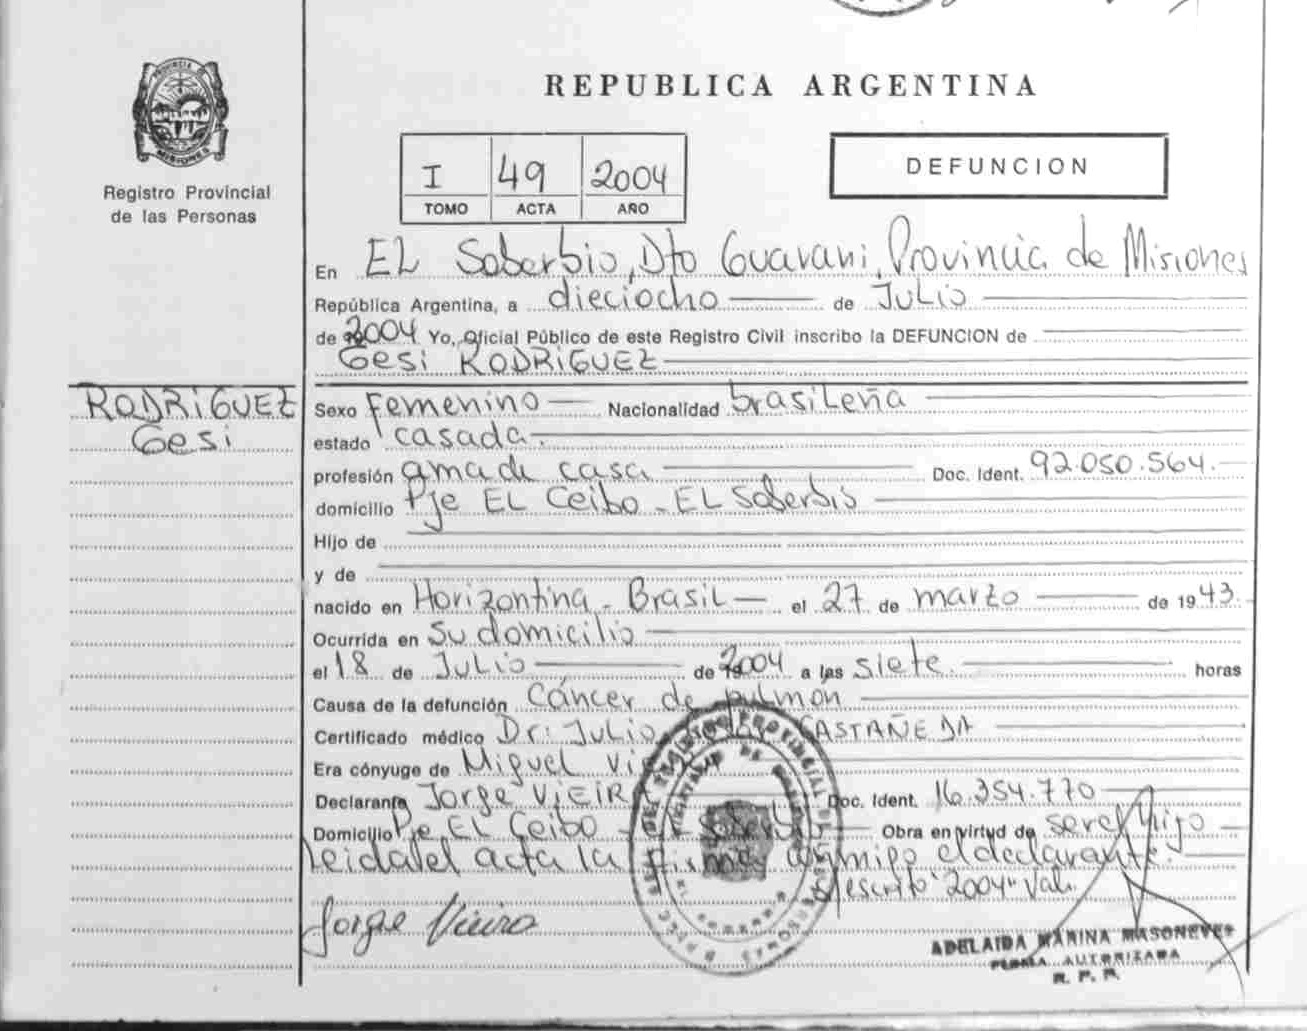 PROVINCIA DE
MISIONES
Registro Provincial
de las Personas
REPUBLICA ARGENTINA
I 49 2004
TOMO ACTA AÑO
DEFUNCION
En EL Soberbio, Dto Guarani, Provincia de Misiones
República Argentina, a dieciocho de Julio
de 2004 Yo, Oficial Público de este Registro Civil inscribo la DEFUNCION de
Gesi RODRIGUEZ
RODRIGUEZ
Gesi
Sexo Femenino Nacionalidad brasileña
estado casada.
profesión ama de casa Doc. Ident. 92.050.564.
domicilio Pje EL Ceibo - EL Soberbio
Hijo de
y de
nacido en Horizontina - Brasil el 27 de marzo de 1943.
Ocurrida en su domicilio
el 18 de Julio de 2004 a las siete horas
Causa de la defunción Cáncer de pulmon
Certificado médico Dr: Julio CASTAÑEDA
Era cónyuge de Miguel
Declarante Jorge VIEIRA Doc. Ident. 16.354.770
Domicilio Pje EL Ceibo - EL Soberbio Obra en virtud de ser hijo
Leida el acta la firma conmigo el declarante.
S/escrito "2004" Vale.
Jorge Vieira
ADELAIDA MARINA MASONEVES
FIRMA AUTORIZADA
R. P. P.